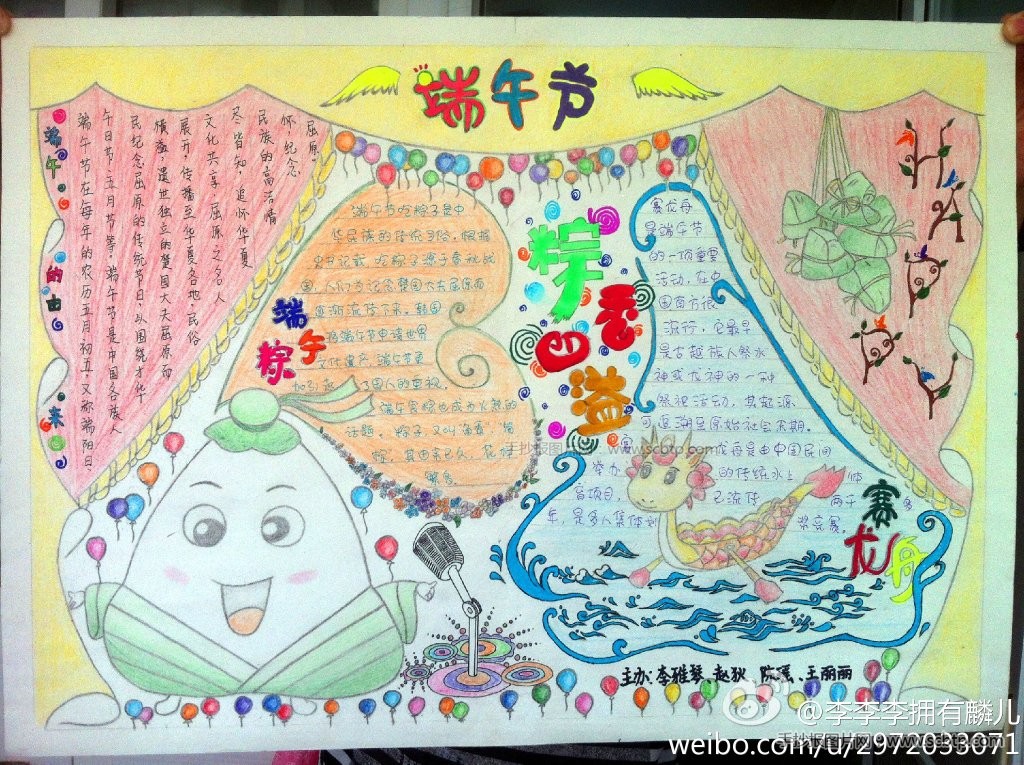 端午节
端午的由来
端午节在每年的农历五月初五又称端阳日,
午日节,五月节等,端午节是中国各族人
民纪念屈原的传统节日,以围绕才华
横溢,遗世独立的楚国大夫屈原而
展开,传播至华夏各地,民俗
文化共享,屈原之名人
尽皆知,追怀华夏
民族的高洁情
怀纪念
屈原.
端午
粽
端午节吃粽子是中
华民族的传统习俗,根据
史书记载,吃粽子源于春秋战
国,人们为纪念楚国大夫屈原而
逐渐流传下来,韩国
将端午节申请世界
文化遗产,端午节更
加引起了国人的重视,
端午食粽也成为人们的
话题,粽子,又叫
粽香四溢
赛龙舟
是端午节
的一项重要
活动,在中
国南方很
流行,它最早
是古越族人祭水
神或龙神的一种
祭祀活动,其起源
可追溯至原始社会末期.
赛龙舟是由中国民间
举办的传统水上体
育项目,已流传两千多
年,是多人集体划桨竞赛.
赛龙舟
主办:李雅琴、赵狄、陈瑶、王丽丽
手抄报图片网 www.scbtp.com
@李李李拥有麟儿
手抄报图片网 www.scbtp.com
weibo.com/u/2972033071